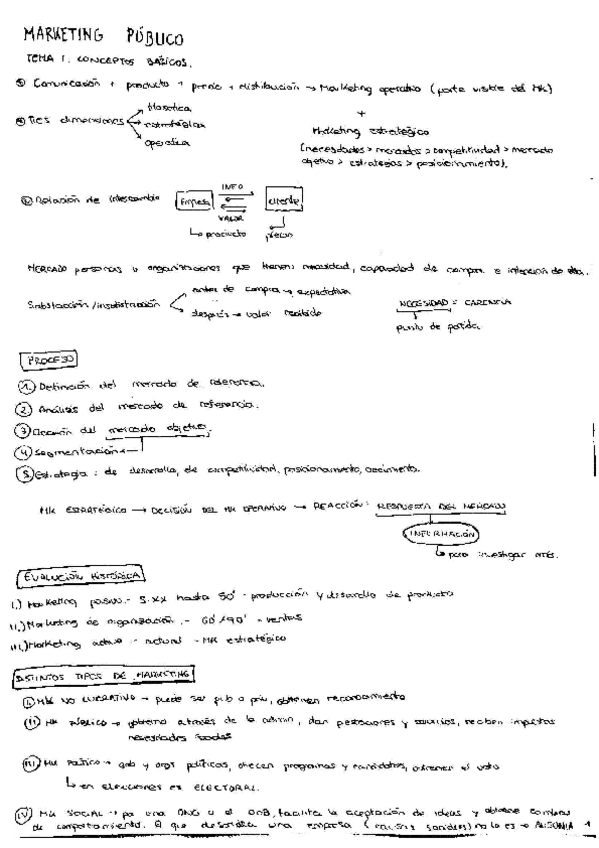 MARKETING PÚBLICO
TEMA 1. CONCEPTOS BÁSICOS.
Comunicación + producto + precio + distribución → Marketing operativo (parte visible del MK)
+
Tres dimensiones
filosófica
estratégica
operativa
Marketing estratégico
(necesidades > mercados > competitividad > mercado
objetivo > estrategias > posicionamiento).
Relación de intercambio
Empresa
INFO
VALOR
cliente
↳ producto
precio
MERCADO personas u organizaciones que tienen: necesidad, capacidad de compra e intención de ella.
Satisfacción/insatisfacción
antes de compra → expectativa
después → valor recibido
NECESIDAD = CARENCIA
punto de partida
PROCESO
1. Definición del mercado de referencia.
2) Análisis del mercado de referencia.
3) Elección del mercado objetivo.
4) Segmentación
5) Estrategia: de desarrollo, de competitividad, posicionamiento, crecimiento.
MK ESTRATÉGICO → DECISIÓN DEL MK OPERATIVO → REACCIÓN: RESPUESTA DEL MERCADO
INFORMACIÓN
↳ para investigar más.
EVOLUCIÓN HISTÓRICA
I.) Marketing pasivo.- S.XX hasta 50' - producción y desarrollo de producto
II.) Marketing de organización.- 60'/90' - ventas
III.) Marketing activo - actual - MK estratégico
DISTINTOS TIPOS DE MARKETING
I) MK NO LUCRATIVO → puede ser pub o priv, obtienen reconocimiento
II) MK PÚBLICO → gobierno a través de la admin, dan prestaciones y servicios, reciben impuestos
necesidades sociales
III) MK POLÍTICO → gob y orgs políticas, ofrecen programas y candidatos, obtener el voto
↳ en elecciones es ELECTORAL.
IV) MK SOCIAL → por una ONG u el GOB, facilita la aceptación de ideas y obtiene cambios
de comportamiento. El que desarrolla una empresa (causas sociales) no lo es → AUSONIA
1